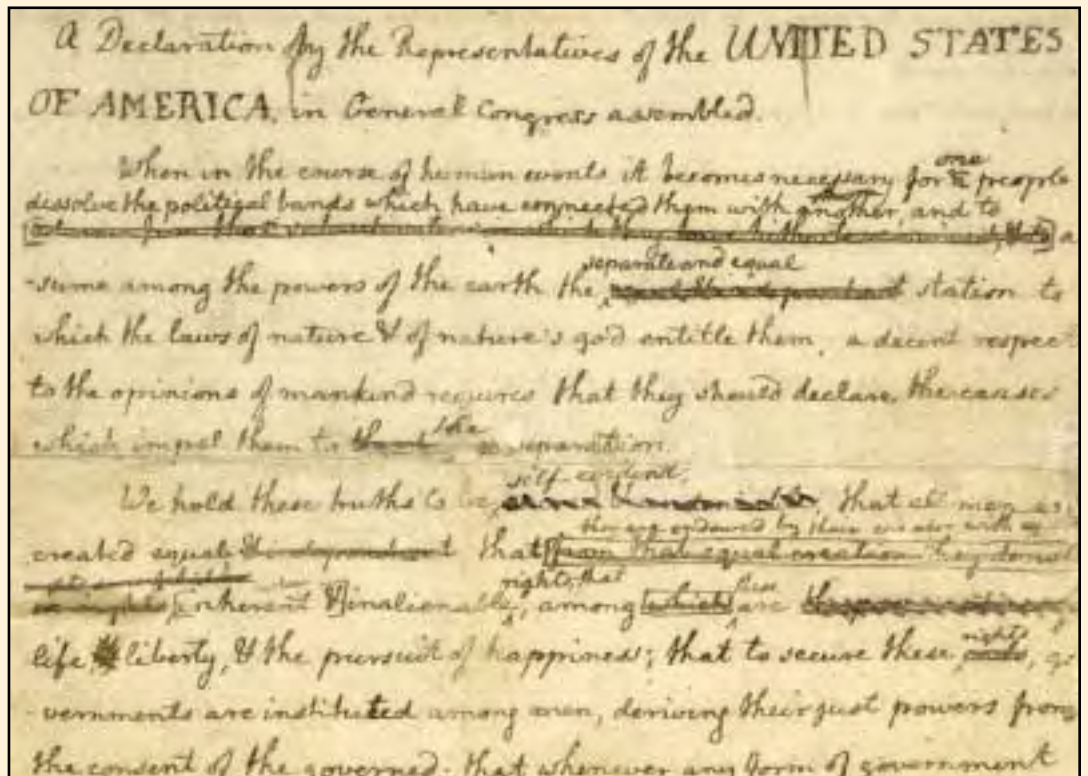 A Declaration by the Representatives of the UNITED STATES
OF AMERICA, in General Congress assembled.
When in the course of human events it becomes necessary for one people
dissolve the political bands which have connected them with another, and to
separate and equal
-sume among the powers of the earth the station to
which the laws of nature & of nature's god entitle them, a decent respect
to the opinions of mankind requires that they should declare the causes
which impel them to the separation.
self-evident
We hold these truths to be that all men
they are endowed by their creator with
created equal & independent that from that equal creation they
rights, that these
inherent & inalienable, among which are
rights
life liberty, & the pursuit of happiness; that to secure these
-vernments are instituted among men, deriving their just powers from
the consent of the governed. that whenever any form of government